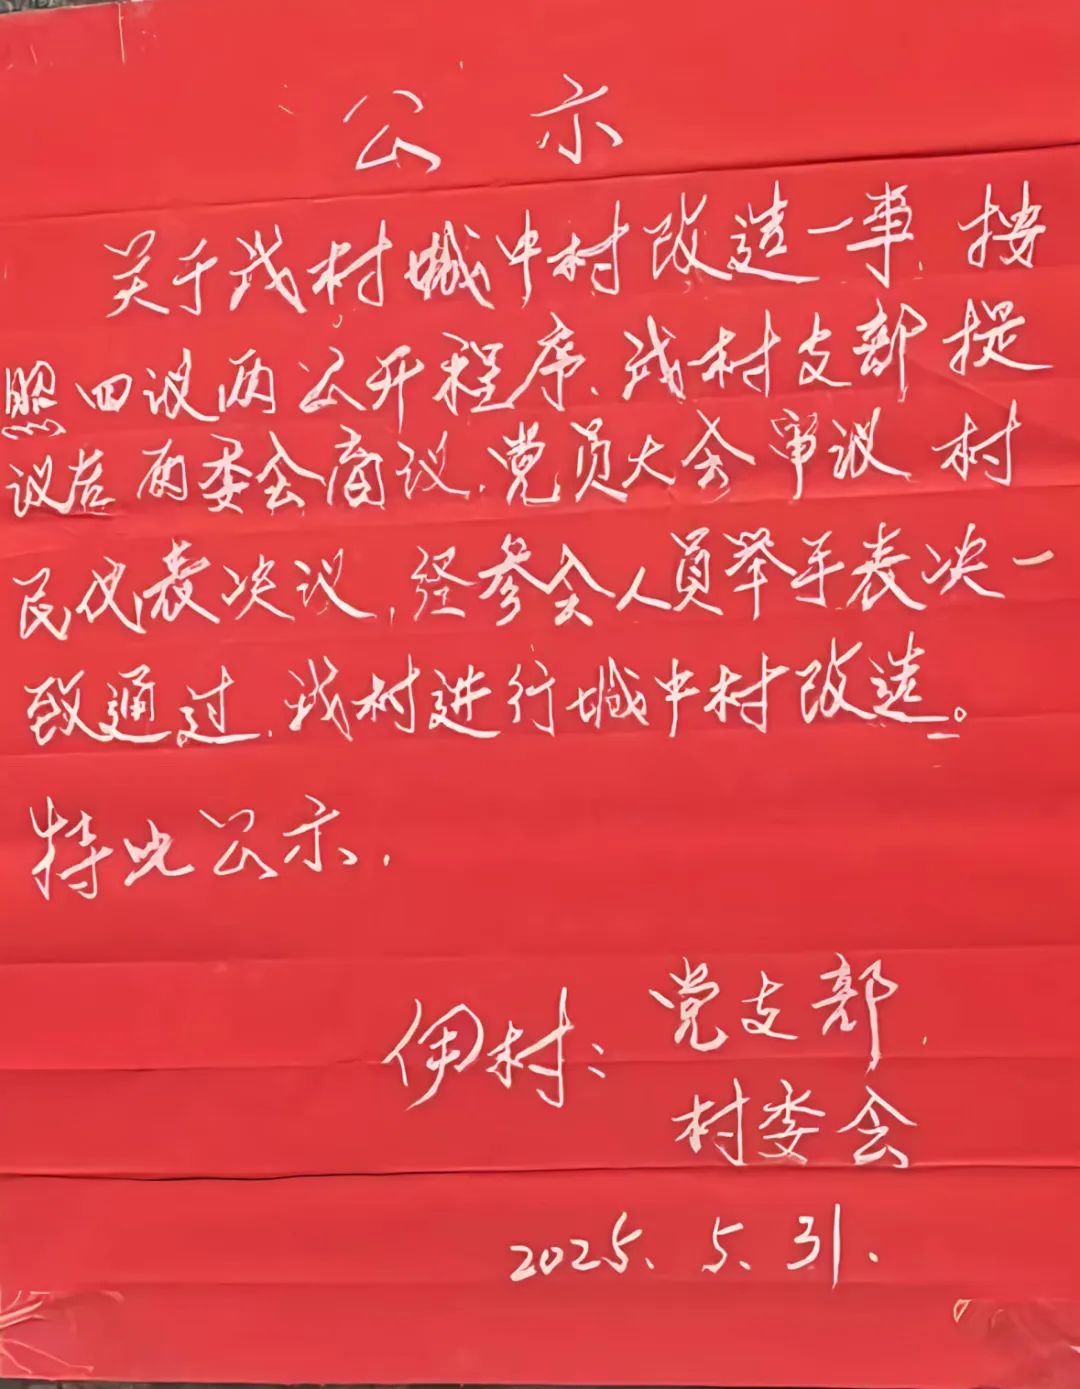 公示
关于我村城中村改造一事、按
照四议两公开程序、我村支部提
议后两委会商议、党员大会审议 村
民代表决议，经参会人员举手表决一
致通过、我村进行城中村改造。
特此公示、
伊村：党支部、
村委会
2025、5、31、